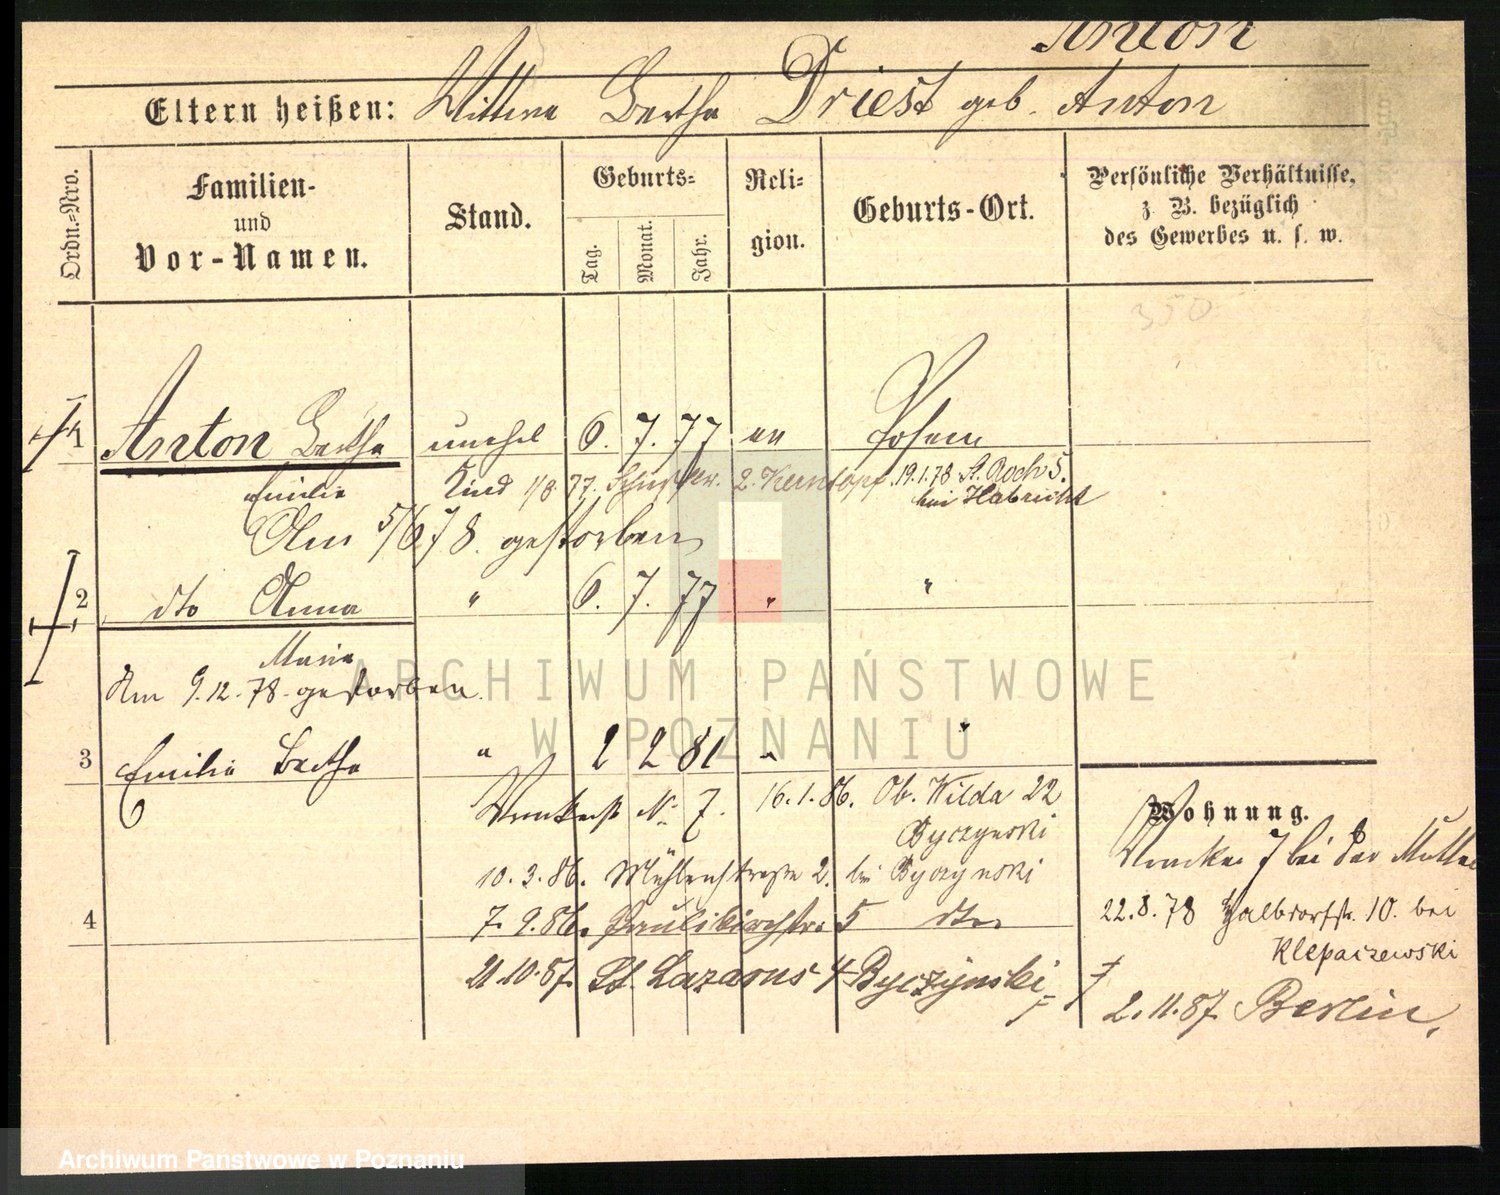 Anton
Eltern heißen: Wittwe Bertha Driest geb. Anton
Ordn.=Nro.
Familien-
und
Vor-Namen.
Stand.
Geburts=
Tag.
Monat.
Jahr.
Reli=
gion.
Geburts-Ort.
Persönliche Verhältnisse,
z. B. bezüglich
des Gewerbes u. s. w.
350
1 Anton Bertha unehel 6. 7. 77 ev Posen
Emilie Kind 1/8. 77. 19.1.78 St. Roch 5.
bei Habricht
Am 5/6 78. gestorben
2 dto Anna " 6. 7. 77 " "
Maria
Am 9.12.78. gestorben.
3 Emilie Bertha " 2 2 81 " "
No 7. 16.1.86. Ob. Wilda 22
Byczynski
10.3.86. Mühlenstraße 2. bei Byczynski
4 7.9.86. Paulikirchstr. 5 dto
21.10.87. St. Lazarus 4 Byczynski
Wohnung.
7 bei der Mutter
22.8.78 Halbdorfstr. 10. bei
Klepaczewski
2.11.87. Berlin.
ARCHIWUM PAŃSTWOWE
W POZNANIU
Archiwum Państwowe w Poznaniu